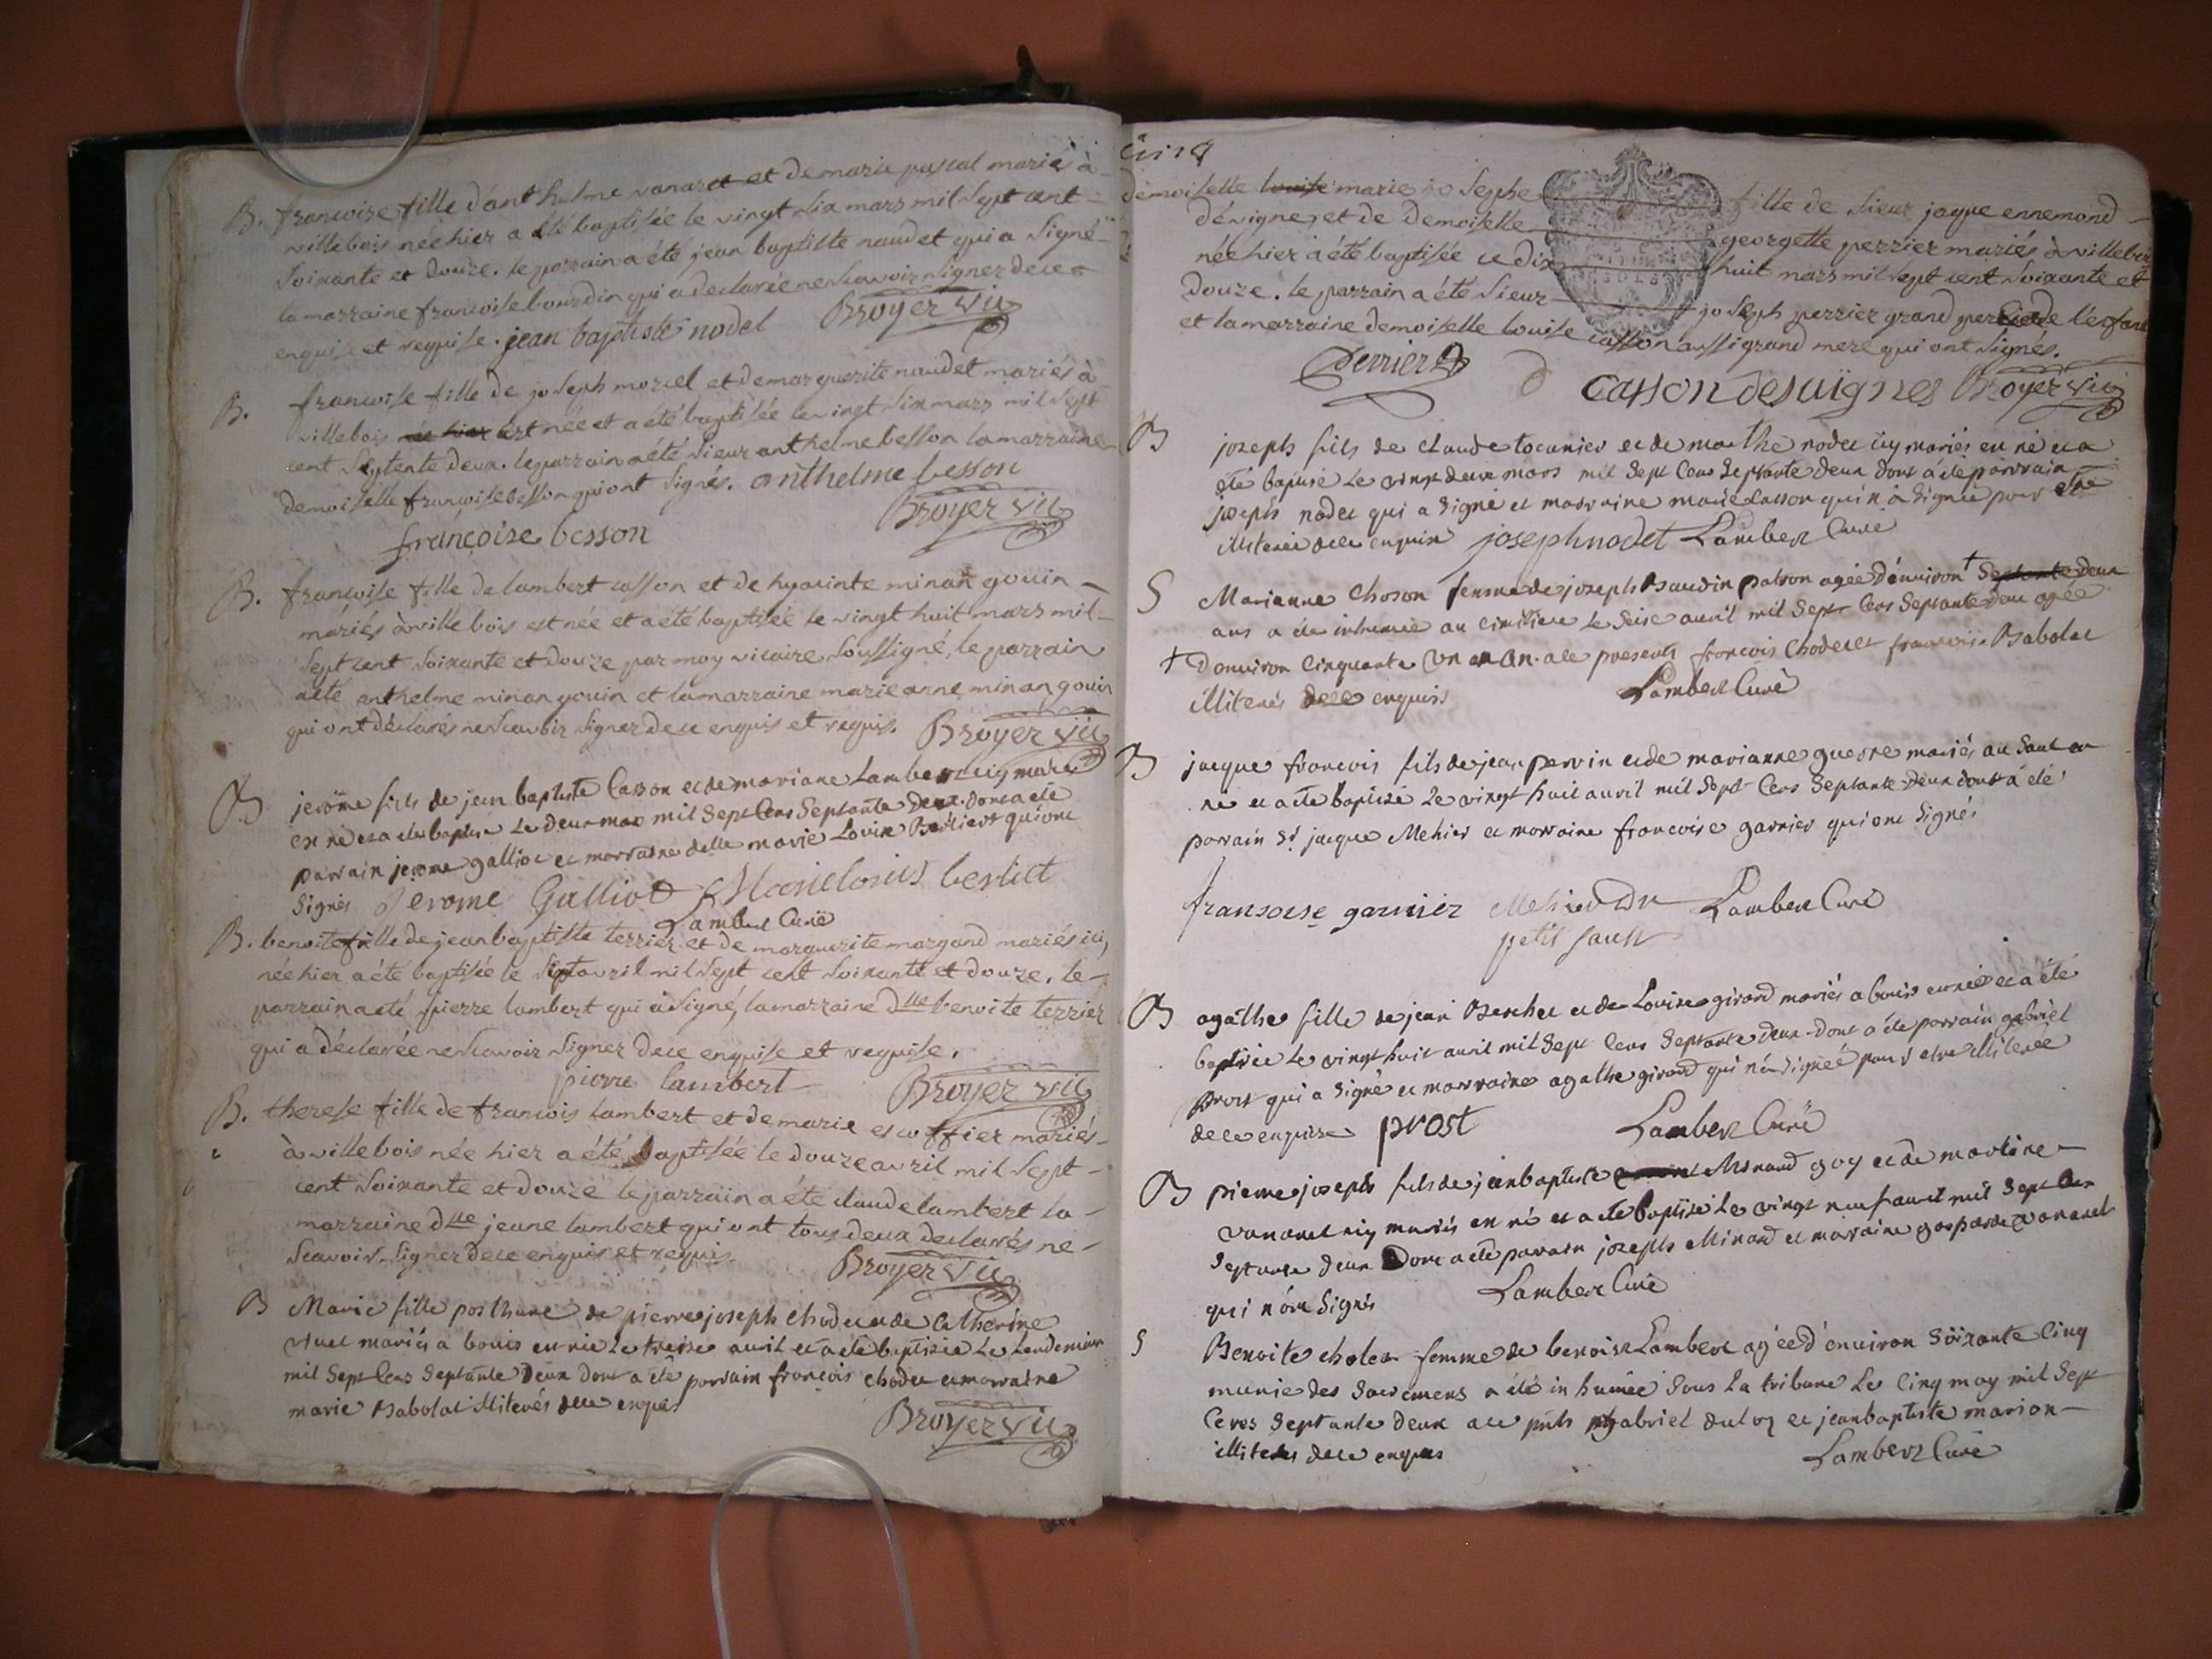 B. francoise fille d'anthelme vanaret et de marie pascal mariés à
villebois née hier a été baptisée le vingt six mars mil sept cent
soixante et douze. le parrain a été jean baptiste naudet qui a signé
la marraine francoise bourdin qui a declarée ne scavoir signer de ce
enquise et requise. jean baptiste nodet Broyer vic
B. francoise fille de joseph morcel et de marguerite naudet mariés à
villebois née hier est née et a été baptisée le vingt six mars mil sept
cent septente deux. le parrain a été sieur anthelme besson la marraine
demoiselle francoise besson qui ont signés. anthelme besson
françoise besson Broyer vic
B. francoise fille de lambert casson et de hyacinte minan gouin
mariés à villebois est née et a été baptisée le vingt huit mars mil
sept cent soixante et douze par moy vicaire soussigné, le parrain
a été anthelme minan gouin et la marraine marie anne minan gouin
qui ont déclarés ne scavoir signer de ce enquis et requis. Broyer vic
B jerôme fils de jean baptiste Casson et de mariane Lambert icy mariés
est né et a été baptisé le deux mil sept cens septante deux. dont a été
parrain jerome galliot et marraine delle marie Louise Berliet qui ont
signés Jerome Galliot Marie louis berliet
Lambert Curé
B. benoite fille de jean baptiste terrier et de marguerite margand mariés ici,
née hier a été baptisée le sept avril mil sept cent soixante et douze, le
parrain a été pierre lambert qui a signé, la marraine dlle benoite terrier
qui a déclarée ne scavoir signer de ce enquise et requise.
pierre lambert Broyer vic
B. therese fille de francois lambert et de marie escoffier mariés
à villebois née hier a été baptisée le douze avril mil sept
cent soixante et douze le parrain a été claude lambert la
marraine dlle jeane lambert qui ont tous deux declarés ne
scavoir signer de ce enquis et requis. Broyer vic
B Marie fille posthume de pierre joseph chodet et de Catherine
mariés a bouis est née le treise avril et a été baptisée le lendemain
mil sept cens septante deux dont a été parrain françois chodet et marraine
marie Babolat illiterés de ce enquis
Broyer vic
demoiselle louise marie josephe fille de sieur jaque ennemond
désvignes et de demoiselle georgette perrier mariés à villebois
née hier a été baptisée ce dix huit mars mil sept cent soixante et
douze. le parrain a été sieur joseph perrier grand pere de l'enfant
et la marraine demoiselle louise casson aussi grand mere qui ont signés.
Perrier casson desuignes Broyer vic
B joseph fils de claude tocanier et de marthe nodet icy mariés est né et a
été baptisé le vingt deux mars mil sept cens septante deux dont a été parrain
joseph nodet qui a signé et marraine marie Casson qui n'a signée pour etre
illiterée de ce enquise joseph nodet Lambert Curé
S Marianne choson femme de joseph Baudin patron agée d'environ † septante deux
ans a été inhumée au cimitiere le seise avril mil sept cens septante deux agée
† d'environ cinquante un an. a ce presents françois chodet et francois Babolat
illiterés de ce enquis Lambert Curé
B jacque francois fils de jean perrin et de marianne guerre mariés au Sault est
né et a été baptisé le vingt huit avril mil sept cens septante deux dont a été
parrain Sr jacque Mehier et marraine francoise garnier qui ont signés
fransoise garnier Mehier du Lambert Curé
petit sault
B agathe fille de jean Berchet et de Louise girard mariés a bouis est née et a été
baptisée le vingt huit avril mil sept cens septante deux dont a été parrain gabriel
Prost qui a signé et marraine agathe girard qui n'a signée pour etre illiterée
de ce enquise prost Lambert Curé
B pierre joseph fils de jean baptiste Minand goy et de martine
vanaret icy mariés est né et a été baptisé le vingt neuf avril mil sept cens
septante deux Dont a été parrain joseph Minand et marraine gasparde vanaret
qui n'ont signés Lambert Curé
S Benoite cholet femme de benoist Lambert agée d'environ soixante cinq
munie des sacremens a été inhumée sous la tribune le cinq may mil sept
cens septante deux a ce pnts gabriel et jean baptiste marion
illiterés de ce enquis Lambert Curé